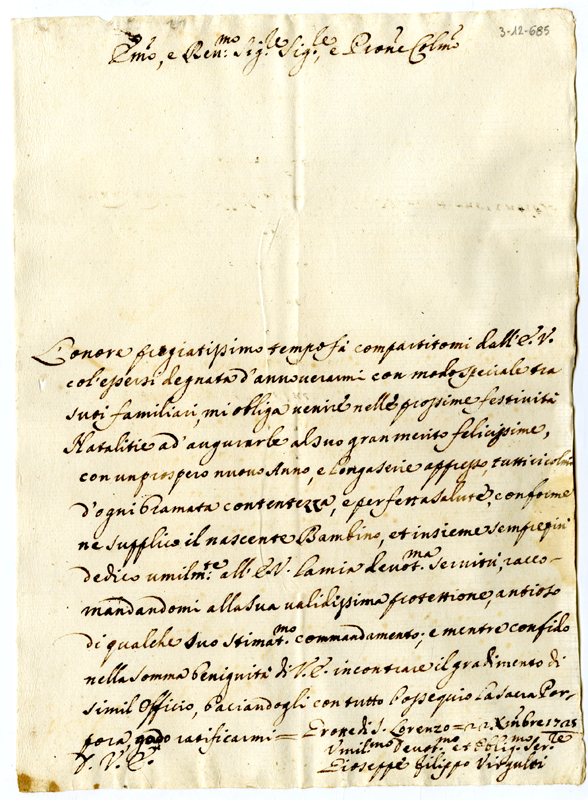 3-12-685
Emo, e Revmo Sigre Sigre, e Prone Colmo
L'onore pregiatissimo tempo fà compartitomi dall'E.V.
col'essersi degnata d'annoverarmi con modo speciale tra
suoi familiari, mi obliga venire nelle prossime festività
Natalitie ad'augurarle al suo gran merito felicissime,
con un prospero nuovo Anno, e longa serie appresso, tutti ricolmi
d'ogni bramata contentezza, e perfetta salute, conforme
ne supplico il nascente Bambino, et insieme sempre più
dedico umilmte all'E.V. la mia devotma servitù, racco-
mandandomi alla sua validissima protettione, antioso
di qualche suo stimatmo commandamento; e mentre confido
nella somma benignità di V.E. incontrare il gradimento di
simil Officio, baciandogli con tutto l'ossequio la Sacra Por-
pora, godo ratificarmi = Grotte di S. Lorenzo = 22 Xmbre 1725
D. V. E.
Umilmo Devotmo et Obligmo Serre
Gioseppe Filippo Virgulti